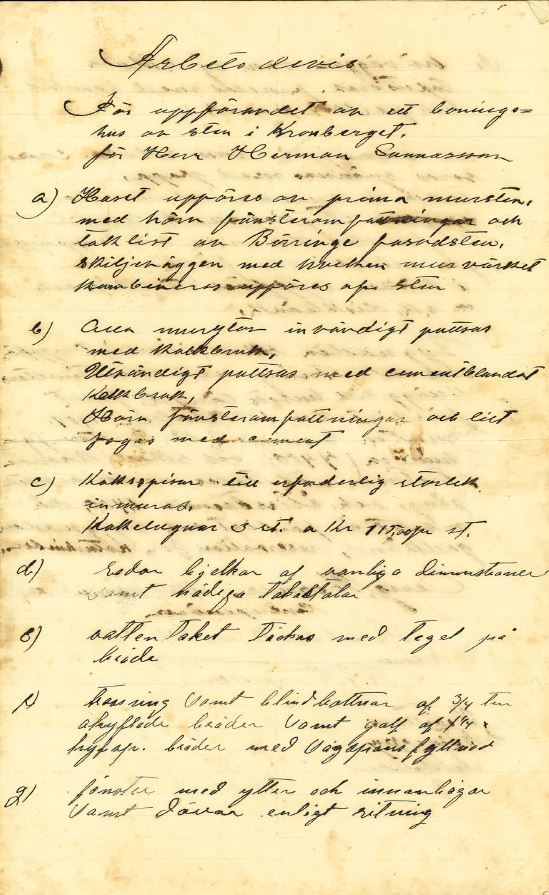 Arbetsdevis
För uppförandet av ett bonings=
hus av sten i Kronberget.
för Herr Herman Gunnarsson
a) Huset uppföres av prima mursten,
med hörn fönsteromfattningar och
taklist av Börringe fasadsten,
skiljeväggen med hvilken murvärket
kombineras uppföres af sten
b) Alla murytor invändigt puttsas
med kalkbruk,
Utvändigt puttsas med cementblandat
kalkbruk,
Hörn fönsteromfattningar och list
fogas med cement
c) Köksspisar till erforderlig storlek
inmuras.
Kakelugnar 3 st. a Kr 115,00 pr st.
d) bjelkar af vanliga dimenstioner
samt nödiga takstolar
e) vattentaket täckas med tegel på
bräde
f) trossning samt blindbottnar af 3/4 tum
ohyflade bräder samt golf af 1 1/4
bräder med sågspånsfyllnad
g) fönster med ytter och innanbågar
samt dörrar enligt ritning